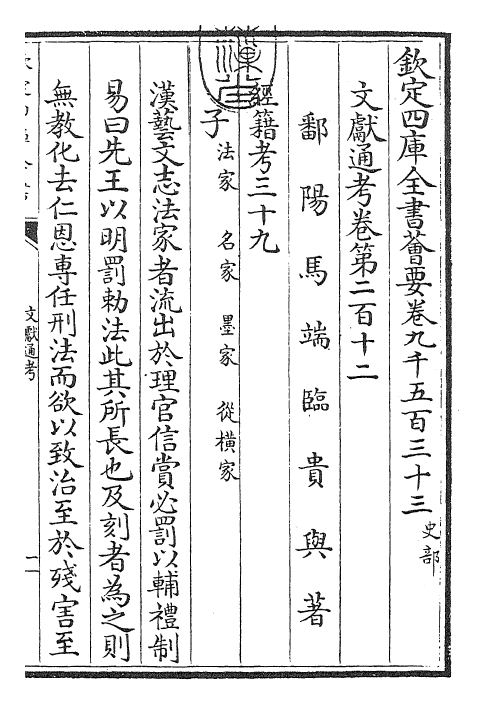 欽定四庫全書薈要卷九千五百三十三 史部
文獻通考卷第二百十二
鄱陽馬端臨貴與著
經籍考三十九
子 法家 名家 墨家 從橫家
漢藝文志法家者流出於理官信賞必罰以輔禮制
易曰先王以明罰勅法此其所長也及刻者為之則
無教化去仁恩專任刑法而欲以致治至於殘害至
文獻通考
一